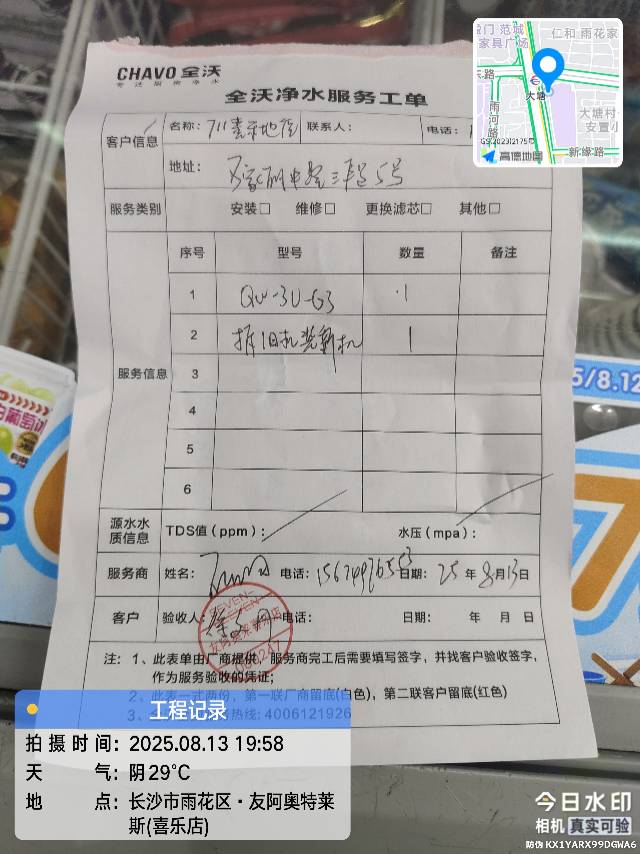 CHAVO 全沃
专注服务净水
全沃净水服务工单
客户信息
名称：
联系人：
电话：
地址：
服务类别
安装□ 维修□ 更换滤芯□ 其他□
服务信息
序号 型号 数量 备注
1 QW-3U-G3 1
2 拆旧机装新机 1
3
4
5
6
源水水质信息
TDS值（ppm）：
水压（mpa）：
服务商
姓名：
电话：
日期：25年8月13日
客户
验收人：
电话：
日期： 年 月 日
注：1、此表单由厂商提供，服务商完工后需要填写签字，并找客户验收签字，
作为服务验收的凭证；
2、此表一式两份，第一联厂商留底(白色)，第二联客户留底(红色)
热线：4006121926
工程记录
拍摄时间：2025.08.13 19:58
天气：阴29℃
地点：长沙市雨花区·友阿奥特莱
斯(喜乐店)
家具广场
仁和·雨花家
大塘
雨河路
新缘路
高德地图
5/8.12
今日水印
相机 真实可验
防伪 KX1YARX99DGWA6